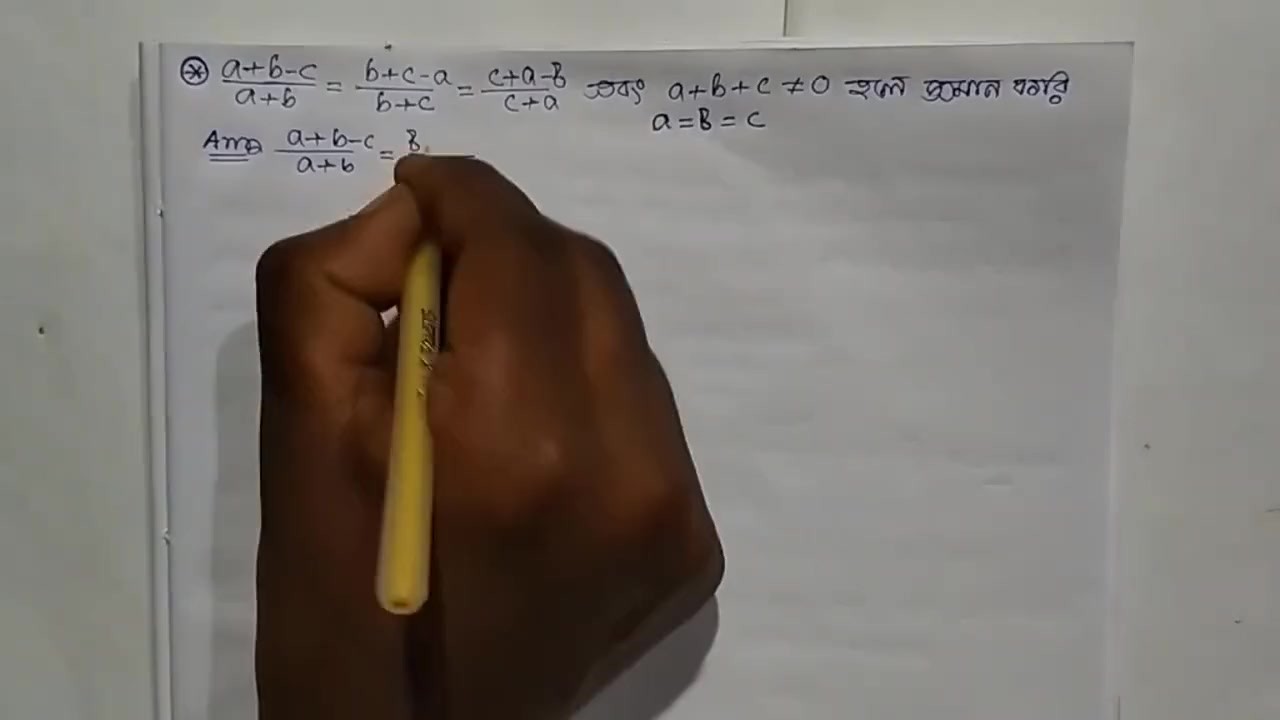 ⊛ (a+b-c)/(a+b) = (b+c-a)/(b+c) = (c+a-B)/(c+a) এবং a+b+c ≠ 0 হলে প্রমান করি
a = B = c
Ans (a+b-c)/(a+b) = B